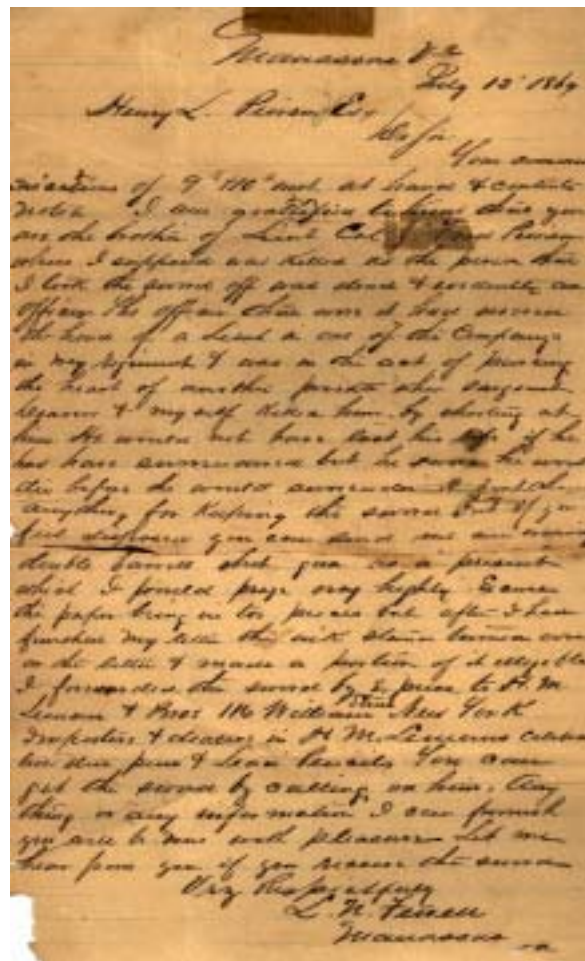 Manassas Va
July 12' 1869
Henry L. Pierson Esq
Dr Sir
Your commu
nications of 9' &10" inst at hand & contents
noted I am gratified to know that you
are the brother of Lieut Col Pierson
whom I supposed was killed as the person that
I took the sword off was dead & evidently an
officer The officer that wore it had
the head of a Lieut in one of the Company
in my regiment & was in the act of piercing
the heart of another private when sargent
& my self killed him by shooting at
him He would not have lost his life if he
had have surrendered but he swore he would
die before he would surrender I
anything for keeping the sword but if you
feel disposed you can send me an
double barrell shot gun as a present
which I would prize very highly Excuse
the paper being in two pieces but after I had
finished my letter the ink stand turned over
on the letter & made a portion of it illegible
I forwarded the sword by Express to H M
& Bros 116 William Street New York
Importers & dealers in H M
pens & Lead Pencils You can
get the sword by calling on him. Any
thing or any information I can furnish
you will be done with pleasure Let me
hear from you if you receive the sword
Very Respectfully
L. N.
Manassas
Va